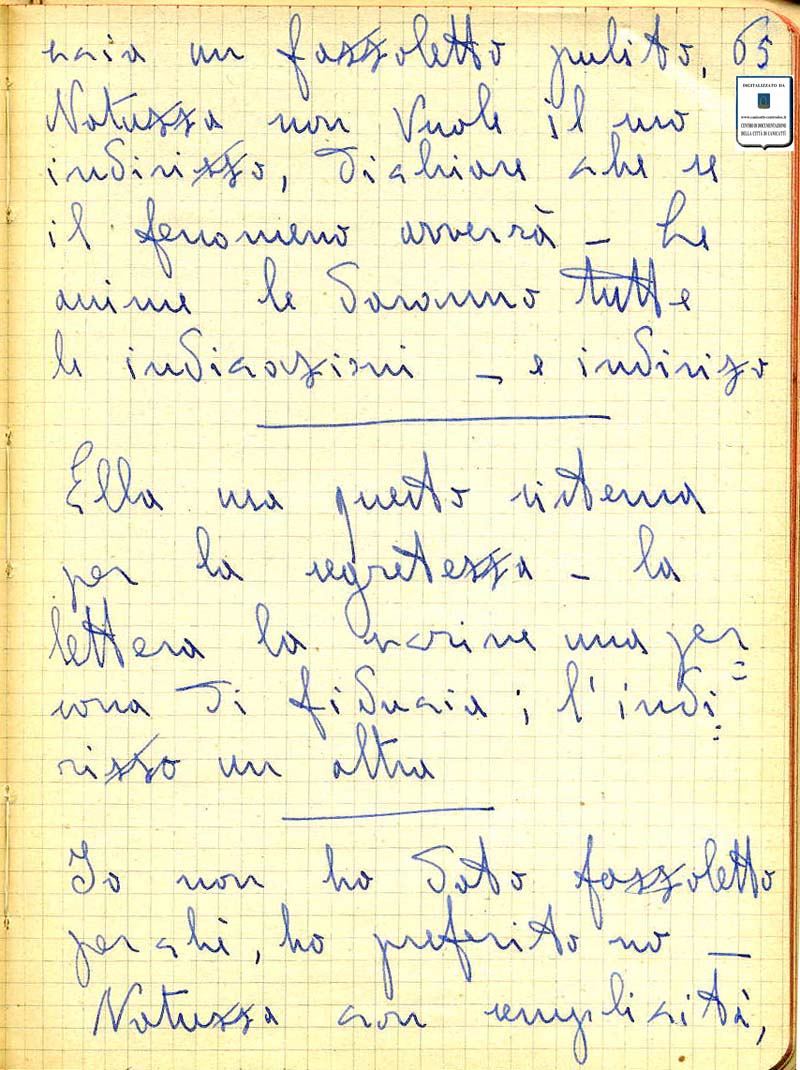 scia un fazzoletto pulito, 65
DIGITALIZZATO DA
CENTRO DI DOCUMENTAZIONE
DELLA CITTÀ DI CANICATTÌ
Natuzza non vuole il suo
indirizzo, dichiara che se
il fenomeno avverrà – Le
anime le daranno tutte
le indicazioni – e indirizo
Ella usa questo sistema
per la segretezza – la
lettera la scrive una per
sona di fiducia; l'indi
rizzo un altra
Io non ho dato fazzoletto
perchè, ho preferito no —
Natuzza con semplicità,